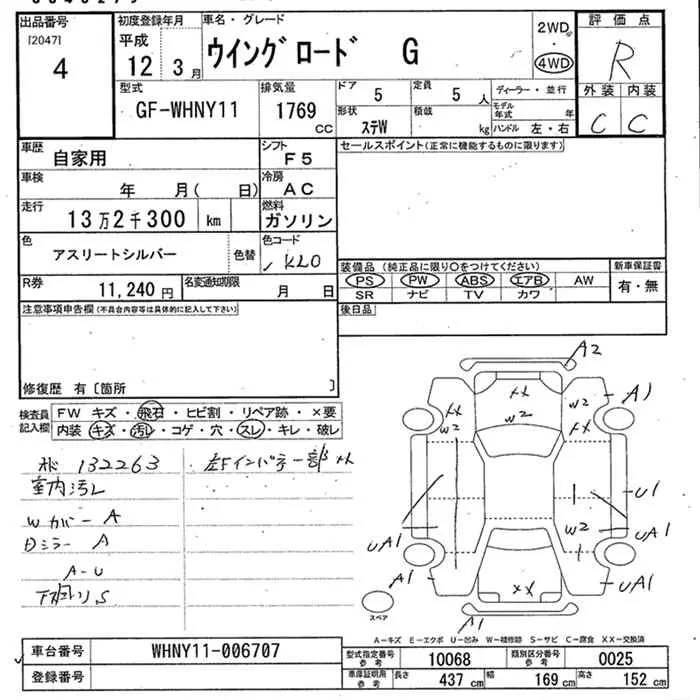 出品番号
[2047]
4
初度登録年月
平成
12 3月
車名・グレード
ウイングロード G
2WD
4WD
評価点
R
外装 内装
C C
型式
GF-WHNY11
排気量
1769
CC
ドア
5
定員
5 人
形状
ステW
積載
kg
ディーラー・並行
モデル年式 年
ハンドル 左・右
車歴
自家用
シフト
F5
セールスポイント(正常に機能するものに限ります)
車検
年 月( 日)
冷房
AC
走行
13万2千300 km
燃料
ガソリン
色
アスリートシルバー
色替
色コード
KL0
装備品(純正品に限り○をつけてください)
PS PW ABS エアB AW
SR ナビ TV カワ
新車保証書
有・無
R券
11,240 円
名変通知期限
月 日
後日品
注意事項申告欄(不具合内容等は具体的に記入して下さい)
修復歴 有〔箇所 〕
検査員記入欄
FW キズ・飛石・ヒビ割・リペア跡・×要
内装 キズ・汚レ・コゲ・穴・スレ・キレ・破レ
132263
室内汚レ
WカバーA
ミラーA
A-U
S
A2
XX
XX
W2
W2
W2
XX
A1
U1
W2
UA1
UA1
A1
UA1
XX
A1
スペア
A-キズ E-エクボ U-凹み W-補修跡 S-サビ C-腐食 XX-交換済
車台番号
WHNY11-006707
登録番号
型式指定番号 参考
10068
類別区分番号 参考
0025
車庫証明用 参考
長さ 437 cm 幅 169 cm 高さ 152 cm